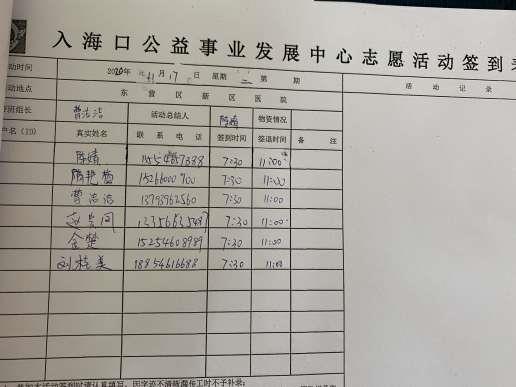 入海口公益事业发展中心志愿活动签到表
动时间 2020年 11月 17日 星期 二 第 期 活动记录
动地点 东营区新区医院
班组长 曹洁洁 活动总结人 陈婧 物资情况
户名(ID) 真实姓名 联系电话 签到时间 签退时间 备注
陈婧 7:30 11:00
15266000700 7:30 11:00
曹洁洁 13793962560 7:30 11:00
7:30 11:00
金楚 15254608989 7:30 11:00
刘桂美 18854616688 7:30 11:00